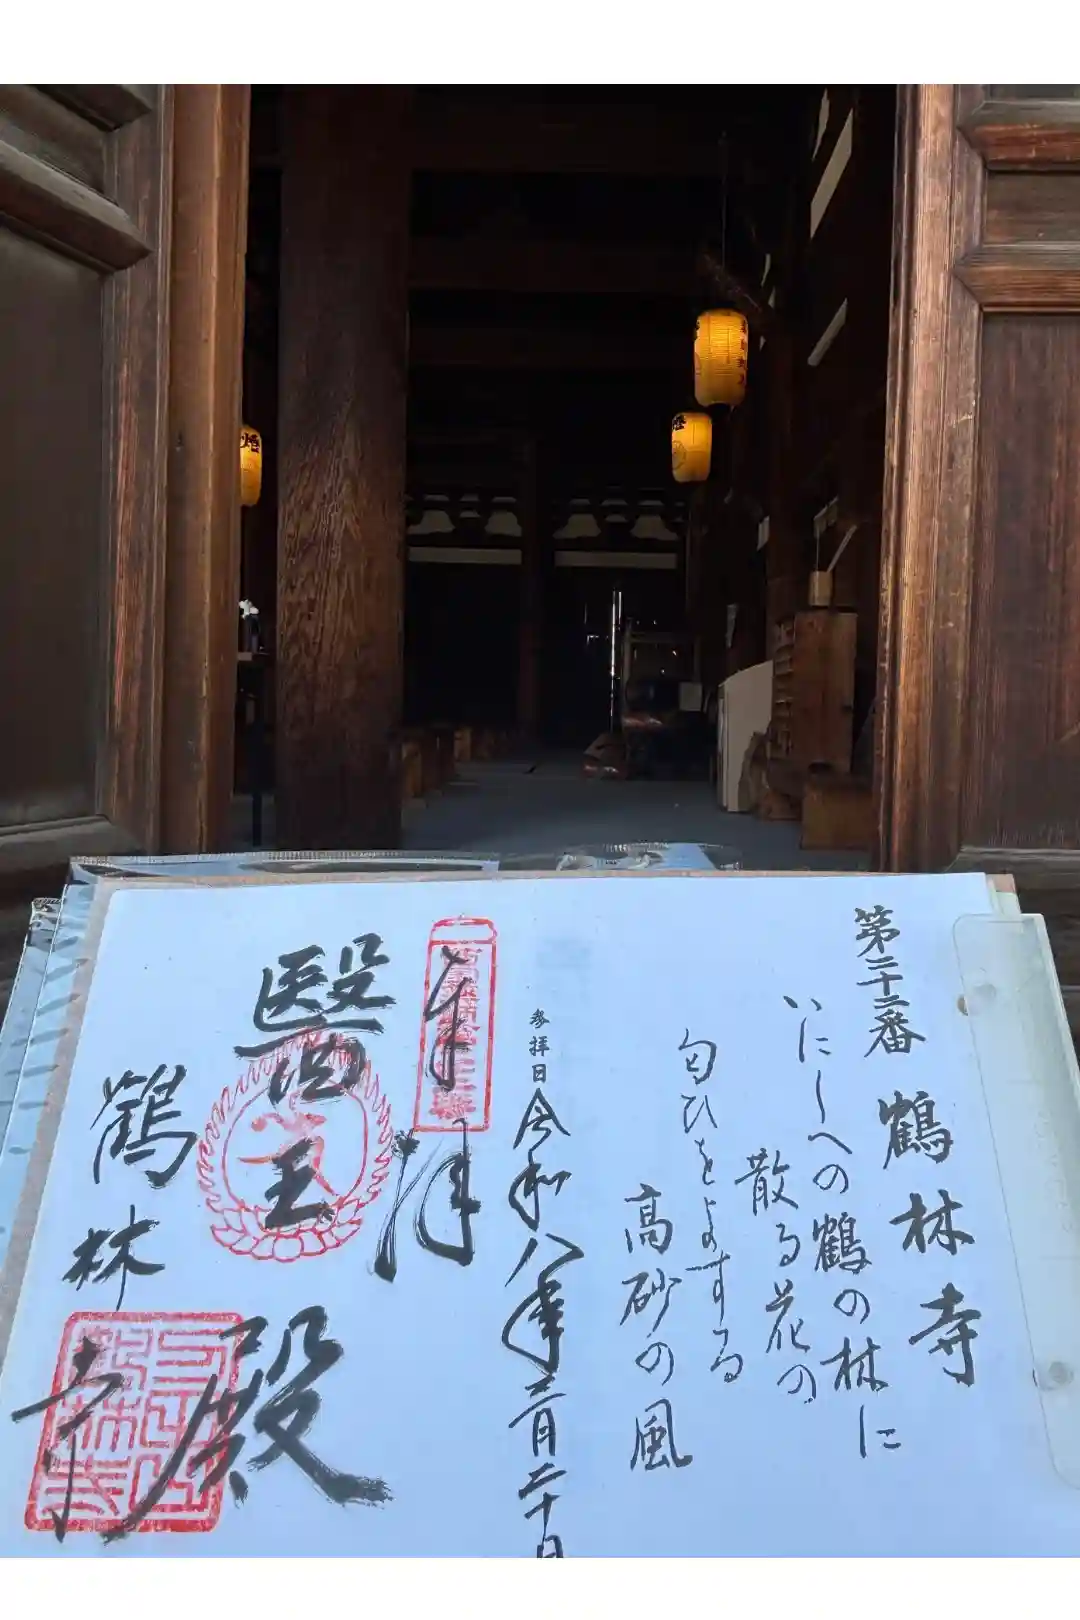 第二十二番 鶴林寺
いにしへの鶴の林に
散る花の
匂ひをよする
高砂の風
参拝日 令和八年二月二十日
奉拝
醫王殿
鶴林寺